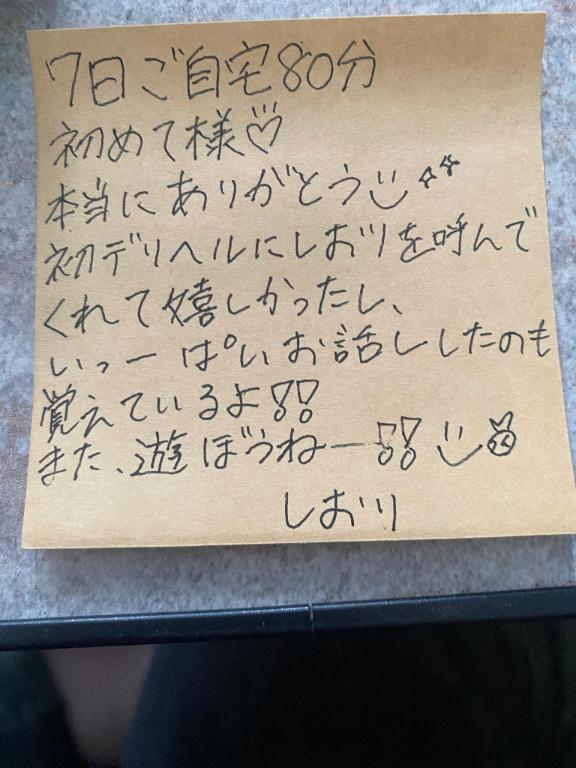 7日ご自宅80分
初めて様♡
本当にありがとう
初デリヘルにしおりを呼んで
くれて嬉しかったし、
いっーぱいお話ししたのも
覚えているよ!!
また、遊ぼうねー!!
しおり